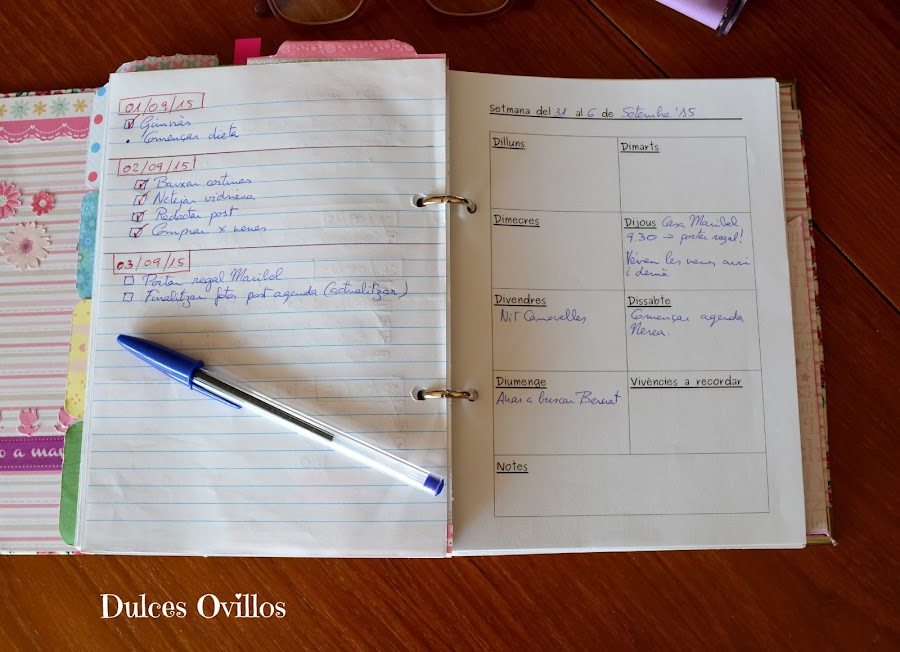 01/09/15
Gimnàs
Començar dieta
02/09/15
Baixar cortines
Netejar vidriera
Redactar post
Comprar x nenes
03/09/15
Portar regal Maribel
Finalitzar fotos post agenda (actualitzar)
o a ma
Setmana del 31 al 6 de Setembre '15
Dilluns
Dimarts
Dimecres
Dijous Casa Maribel
9.30 → portar regal!
Vénen les nenes avui
i demà
Divendres
Nit Canovelles
Dissabte
Començar agenda
Nerea.
Diumenge
Anar a buscar Bernat
Vivències a recordar
Notes
Dulces Ovillos